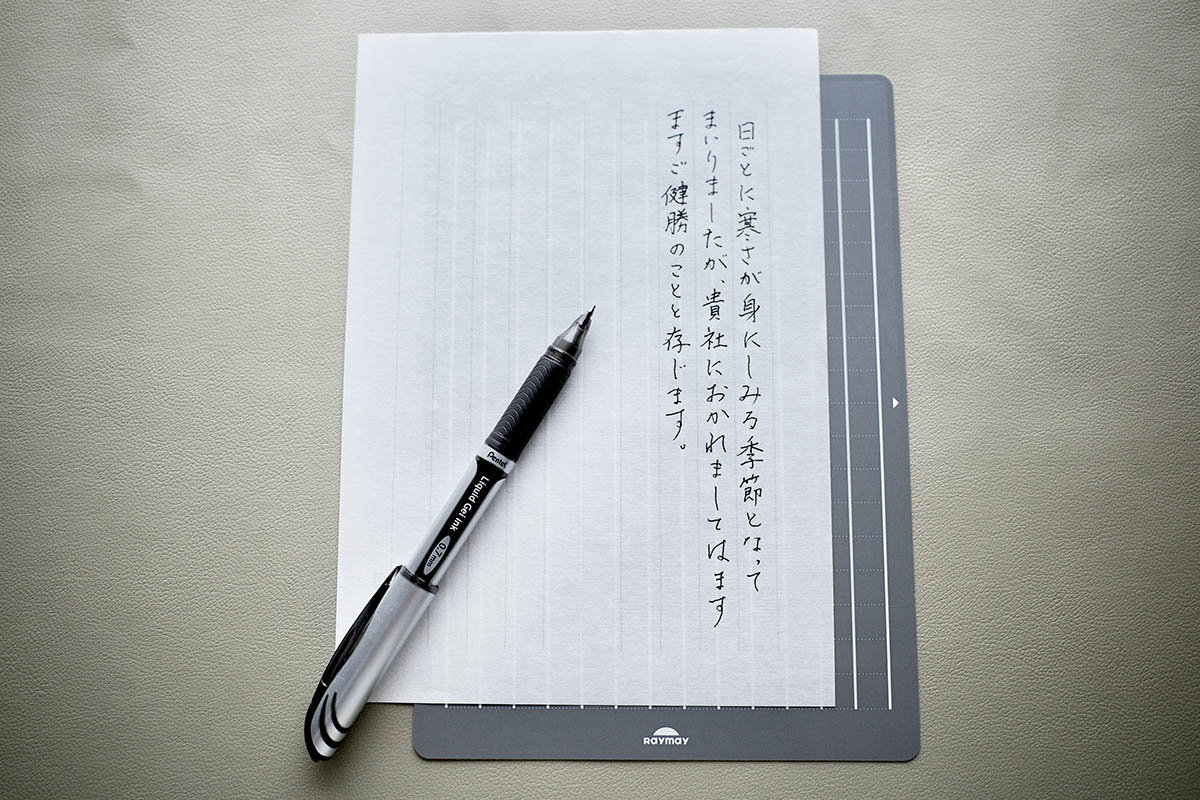 日ごとに寒さが身にしみる季節となって
まいりましたが、貴社におかれましてはます
ますご健勝のことと存じます。
Pentel
Liquid Gel Ink
0.7mm
RAYMAY